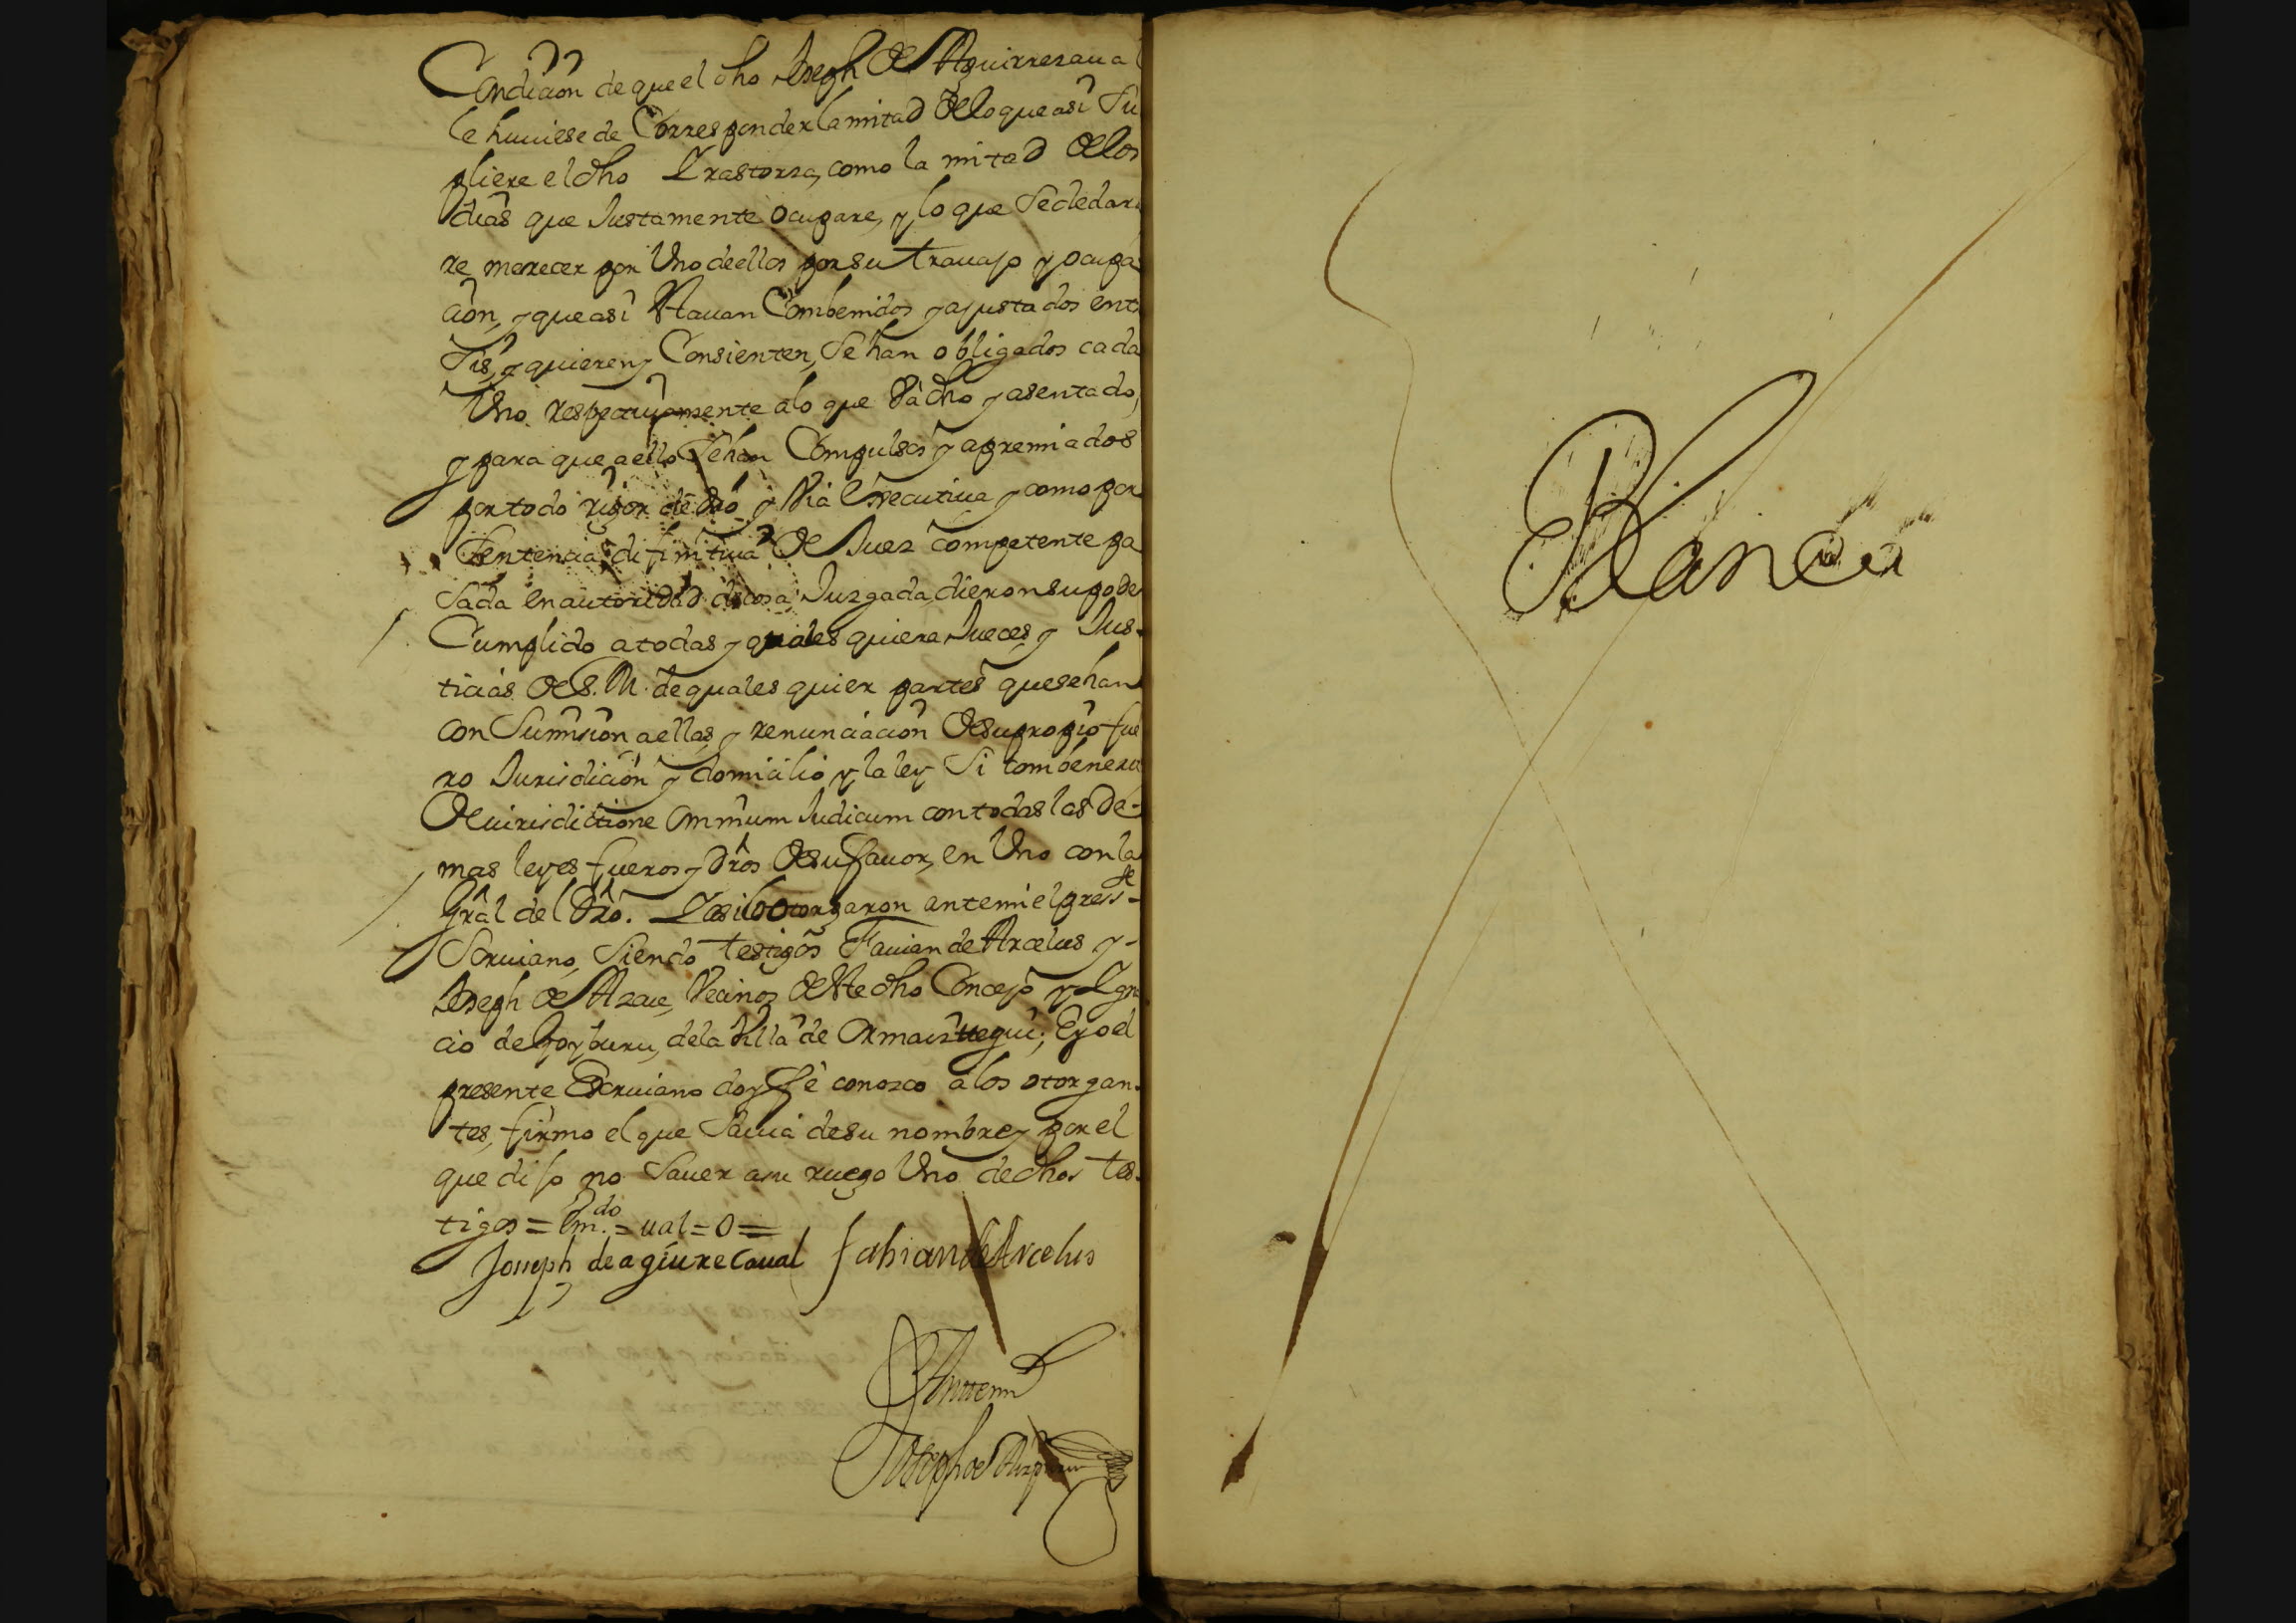 Condicion de que el dho Joseph de Aguirrezaual
le huuiese de Corresponder la mitad de lo que asi Su
pliere el dho Yrastorza, como la mitad de los
dias que Justamente ocupare, y lo que Se decla
re merecer por Uno de ellos por su trauajo y ocupa
cion, y que asi Hauan Combenidos y ajustados entre
Sis, y quieren y Consienten, Se han obligados cada
Uno respectiuamente a lo que Va dho y asentado,
y para que a ello Sehan Compulsos y apremiados
por todo rigor de dro y Via Executiua y como por
Sentencia difinitiua de Juez competente pa
sada en autoridad de cosa Juzgada, dieron su poder
Cumplido a todas y quales quiera Jueces y Jus-
ticias de S. M. de quales quier partes que sehan
con Sumision a ellas y renunciacion de su propio fue
ro Jurisdicion y domicilio y la ley Si combenerit
de iurisdictione omnium Judicum con todas las de-
mas leyes fueros y dros de su fauor, en Uno con la
Gral del dro. Y asi lo otorgaron ante mi el press.te
Scriuano, Siendo testigos Fauian de Arcelus y
Joseph de Vecinos de este dho Concejo y Igna
cio de Goyburu, de la Villa de Ormaiztegui; E yo el
presente Escriuano doy fe conozco a los otorgan-
tes, firmo el que Sauia de su nombre y por el
que dijo no Sauer a su ruego Uno de dhos tes-
tigos = Em.do = ual = O =
Joseph de agiurecaual fabian de Arcelus
Ante mi
Joseph de
Blanco